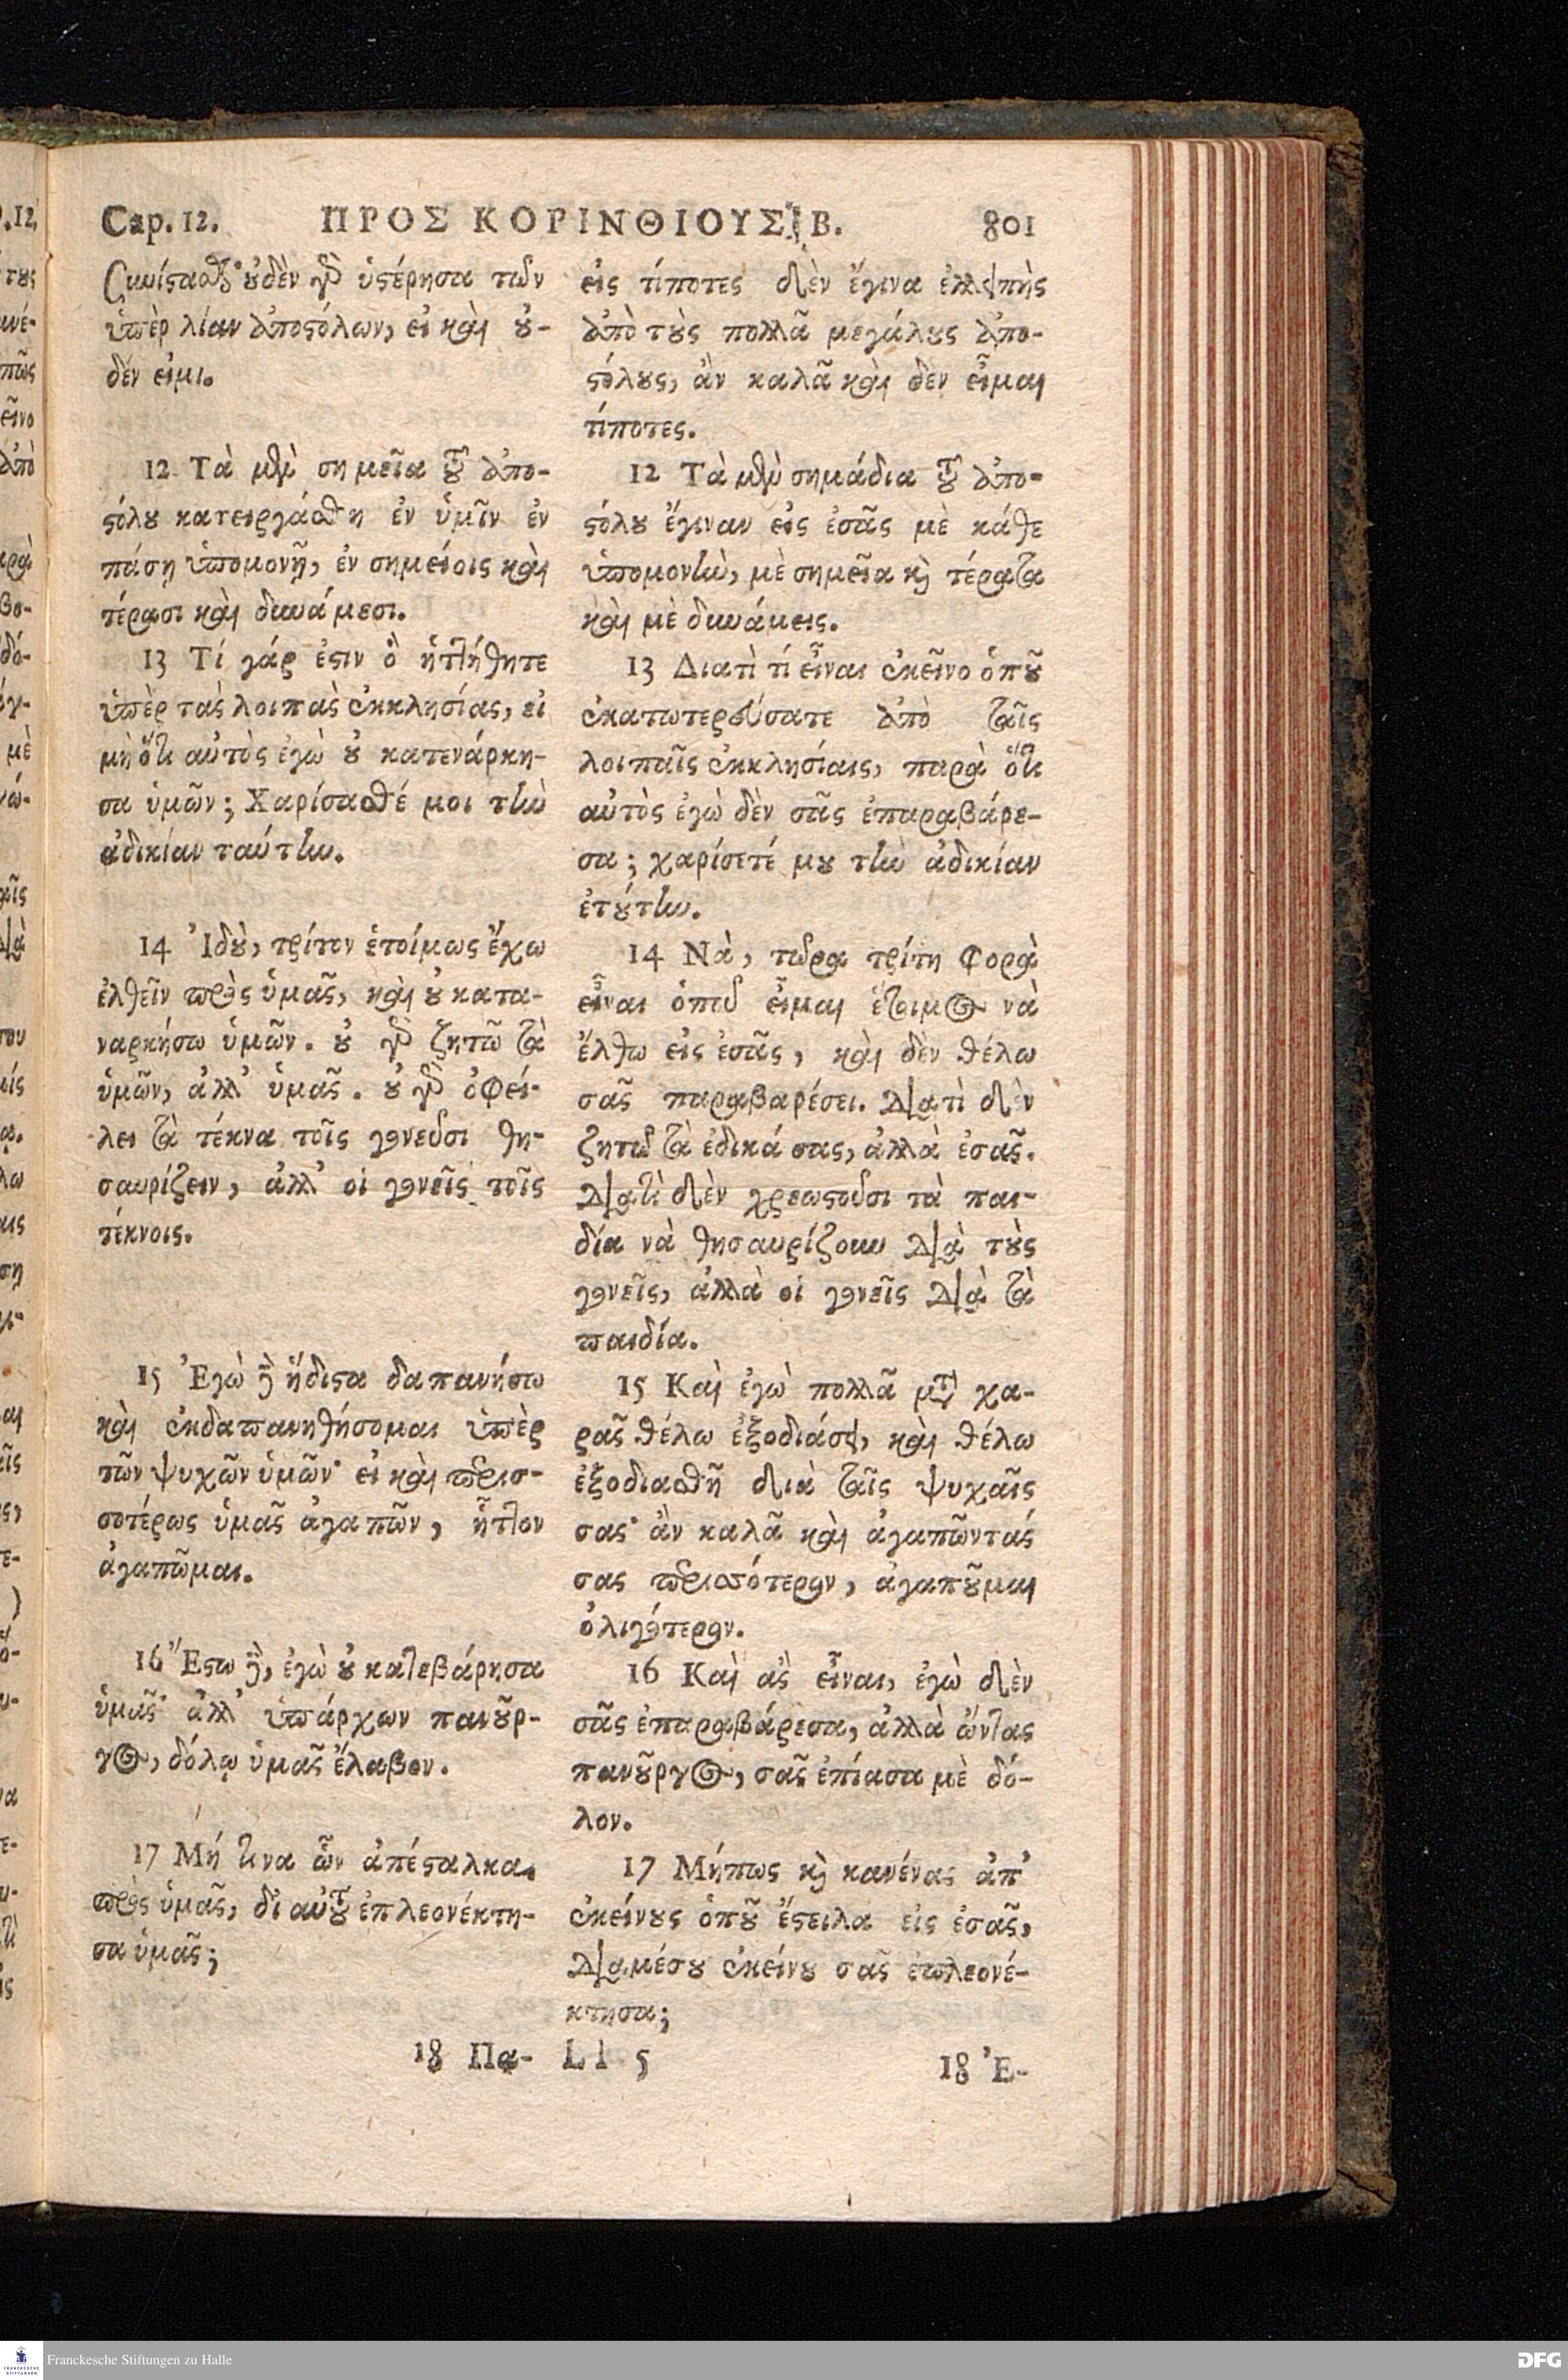 Cap. 12. ΠΡΟΣ ΚΟΡΙΝΘΙΟΥΣ Β. 801
συνίστασθαι· οὐδὲν γὰρ ὑστέρησα τῶν
ὑπὲρ λίαν ἀποστόλων, εἰ καὶ οὐ-
δέν εἰμι.
12 Τὰ μὲν σημεῖα τοῦ ἀπο-
στόλου κατειργάσθη ἐν ὑμῖν ἐν
πάσῃ ὑπομονῇ, ἐν σημείοις καὶ
τέρασι καὶ δυνάμεσι.
13 Τί γάρ ἐστιν ὃ ἡττήθητε
ὑπὲρ τὰς λοιπὰς ἐκκλησίας, εἰ
μὴ ὅτι αὐτὸς ἐγὼ οὐ κατενάρκη-
σα ὑμῶν; Χαρίσασθέ μοι τὴν
ἀδικίαν ταύτην.
14 Ἰδοὺ, τρίτον ἑτοίμως ἔχω
ἐλθεῖν πρὸς ὑμᾶς, καὶ οὐ κατα-
ναρκήσω ὑμῶν. οὐ γὰρ ζητῶ τὰ
ὑμῶν, ἀλλ' ὑμᾶς. οὐ γὰρ ὀφεί-
λει τὰ τέκνα τοῖς γονεῦσι θη-
σαυρίζειν, ἀλλ' οἱ γονεῖς τοῖς
τέκνοις.
15 Ἐγὼ δὲ ἥδιστα δαπανήσω
καὶ ἐκδαπανηθήσομαι ὑπὲρ
τῶν ψυχῶν ὑμῶν· εἰ καὶ περισ-
σοτέρως ὑμᾶς ἀγαπῶν, ἧττον
ἀγαπῶμαι.
16 Ἔστω δὲ, ἐγὼ οὐ κατεβάρησα
ὑμᾶς· ἀλλ' ὑπάρχων πανοῦρ-
γος, δόλῳ ὑμᾶς ἔλαβον.
17 Μή τινα ὧν ἀπέσταλκα
πρὸς ὑμᾶς, δι αὐτοῦ ἐπλεονέκτη-
σα ὑμᾶς;
18 Πα-
εἰς τίποτες δὲν ἔγινα ἐλλειπὴς
ἀπὸ τοὺς πολλᾶ μεγάλους ἀπο-
στόλους, ἂν καλᾶ καὶ δὲν εἶμαι
τίποτες.
12 Τὰ μὲν σημάδια τοῦ ἀπο-
στόλου ἔγιναν εἰς ἐσᾶς μὲ κάθε
ὑπομονὴν, μὲ σημεῖα καὶ τέρατα
καὶ μὲ δυνάμεις.
13 Διατὶ τί εἶναι ἐκεῖνο ὁποῦ
ἐκατωτερεύσατε ἀπὸ ταῖς
λοιπαῖς ἐκκλησίαις, παρὰ ὅτι
αὐτὸς ἐγὼ δὲν σᾶς ἐπαραβάρε-
σα; χαρίσετέ μου τὴν ἀδικίαν
ἐτούτην.
14 Νὰ, τῶρα τρίτη φορὰ
εἶναι ὁποῦ εἶμαι ἕτοιμος νὰ
ἔλθω εἰς ἐσᾶς, καὶ δὲν θέλω
σᾶς παραβαρέσει. Διατὶ δὲν
ζητῶ τὰ ἐδικά σας, ἀλλὰ ἐσᾶς.
Διατὶ δὲν χρεωστοῦσι τὰ παι-
δία νὰ θησαυρίζουν διὰ τοὺς
γονεῖς, ἀλλὰ οἱ γονεῖς διὰ τὰ
παιδία.
15 Καὶ ἐγὼ πολλᾶ μετὰ χα-
ρᾶς θέλω ἐξοδιάσει, καὶ θέλω
ἐξοδιασθῆ διὰ ταῖς ψυχαῖς
σας· ἂν καλᾶ καὶ ἀγαπῶντάς
σας περισσότερον, ἀγαποῦμαι
ὀλιγότερον.
16 Καὶ ἂς εἶναι, ἐγὼ δὲν
σᾶς ἐπαραβάρεσα, ἀλλὰ ὤντας
πανοῦργος, σᾶς ἐπίασα μὲ δό-
λον.
17 Μήπως καὶ κανένας ἀπ'
ἐκείνους ὁποῦ ἔστειλα εἰς ἐσᾶς,
διαμέσου ἐκείνου σᾶς ἐπλεονέ-
κτησα;
Ll 5
18 Ἐ-
Franckesche Stiftungen zu Halle
DFG